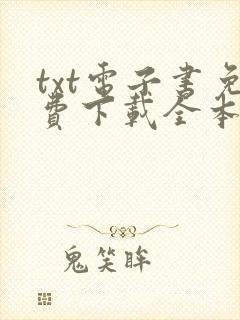 txt電子書免
費下載全本
鬼笑眸